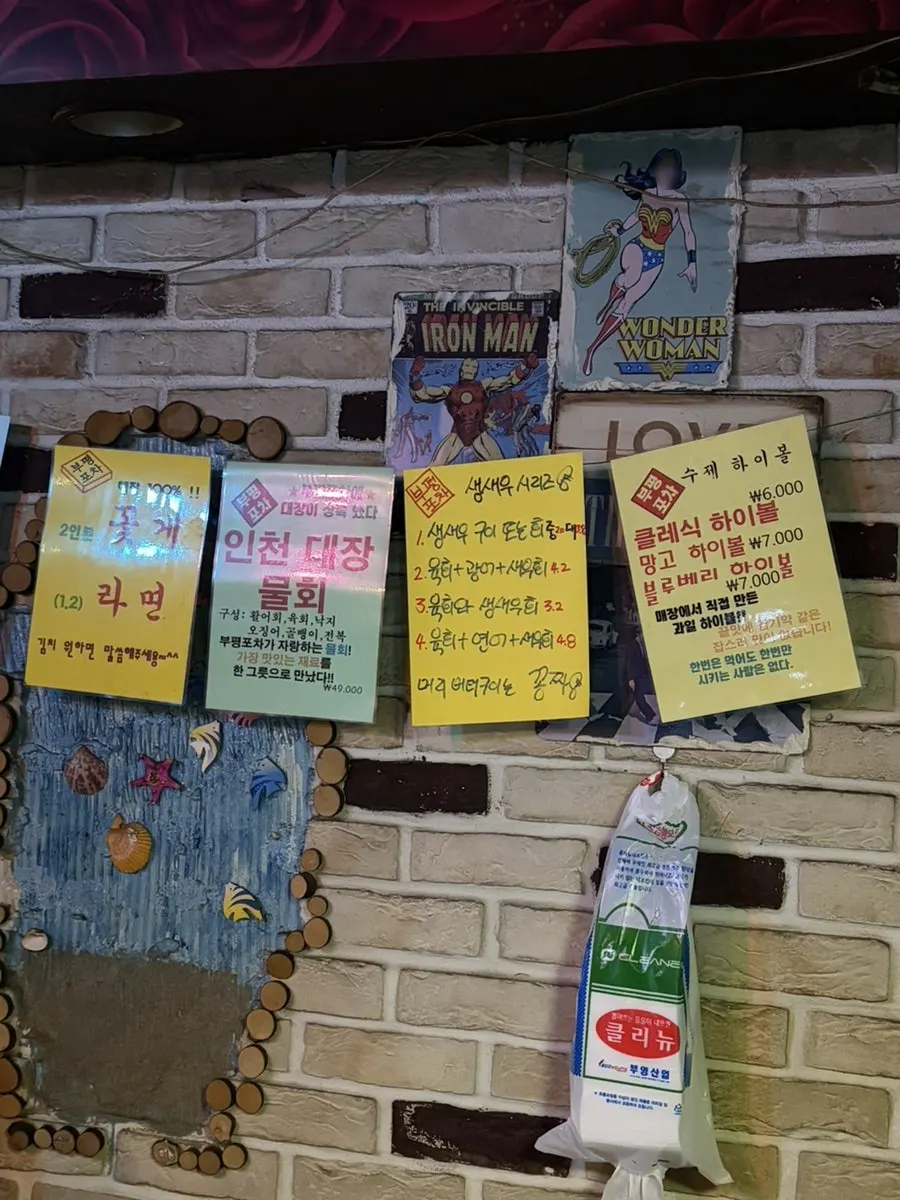 THE INVINCIBLE
IRON MAN
WONDER
WOMAN
부평
포차
100% !!
2인분 꽃게
(1.2) 라면
김치 원하면 말씀해주세용~^^
부평
포차
대장이 상륙 했다
인천 대장
물회
구성: 활어회,육회,낙지
오징어,골뱅이,전복
부평포차가 자랑하는 물회!
가장 맛있는 재료를
한 그릇으로 만났다!!
₩49,000
부평
포차
생새우 시리즈
1. 생새우 구이 또는 회
2. 육회+광어+생새우회 4.2
3. 육회와 생새우회 3.2
4. 육회+연어+생새우회 4.8
머리 버터구이는 꽁짜
부평
포차
수제 하이볼
₩6.000
클레식 하이볼
망고 하이볼 ₩7.000
블루베리 하이볼
₩7.000
매장에서 직접 만든
과일 하이볼!!
한번은 먹어도 한번만
시키는 사람은 없다.
CLEANE
클리뉴
부영산업